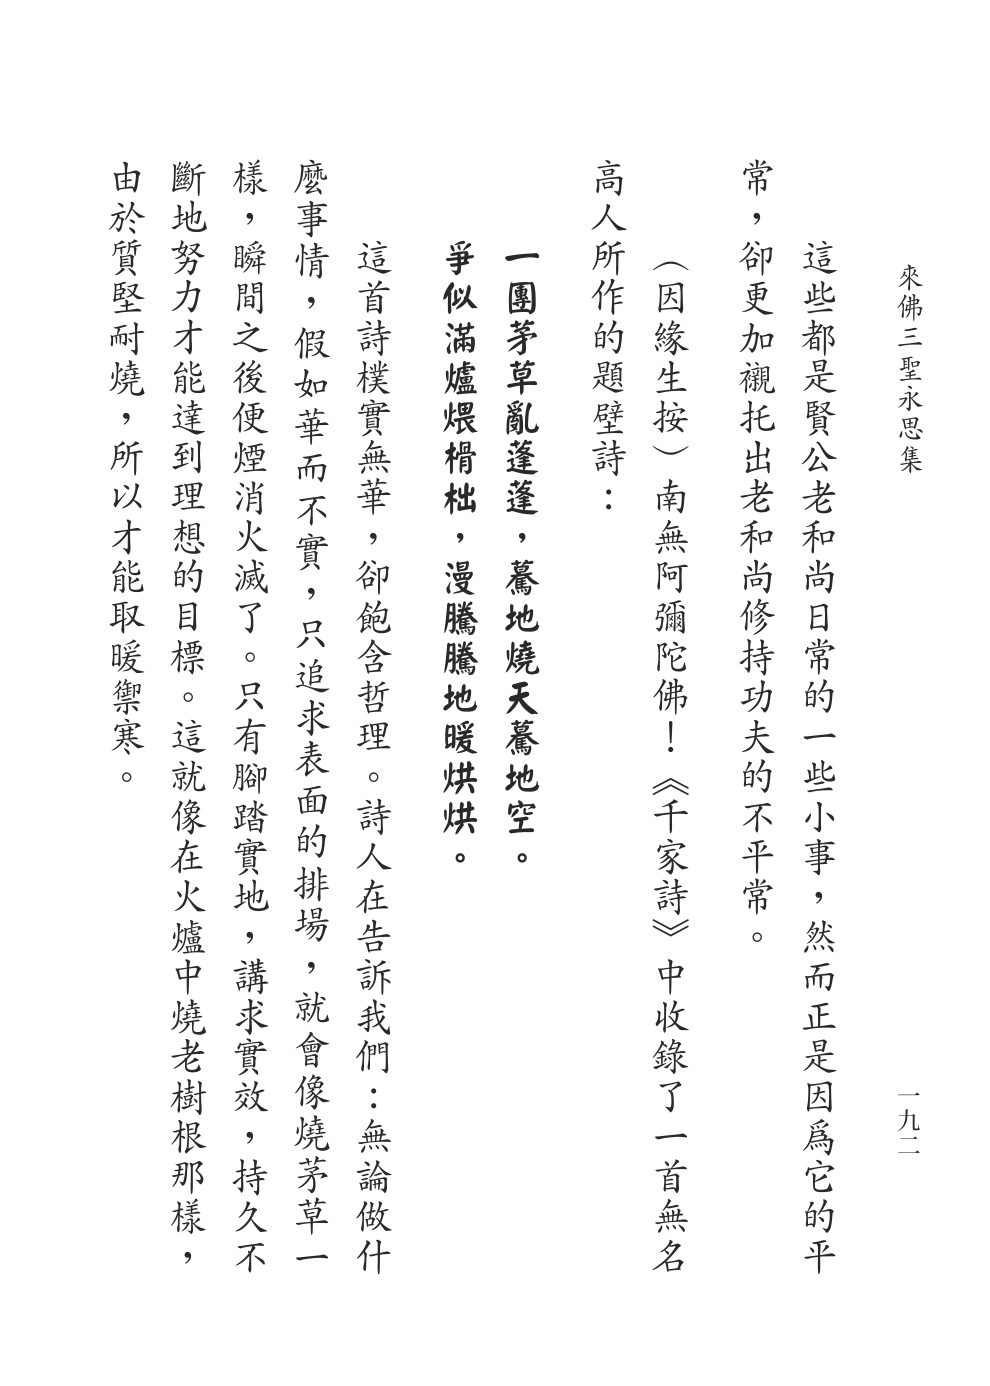 來佛三聖永思集
一九二
這些都是賢公老和尚日常的一些小事，然而正是因爲它的平
常，卻更加襯托出老和尚修持功夫的不平常。
（因緣生按）南無阿彌陀佛！《千家詩》中收錄了一首無名
高人所作的題壁詩：
一團茅草亂蓬蓬，驀地燒天驀地空。
爭似滿爐煨榾柮，漫騰騰地暖烘烘。
這首詩樸實無華，卻飽含哲理。詩人在告訴我們：無論做什
麼事情，假如華而不實，只追求表面的排場，就會像燒茅草一
樣，瞬間之後便煙消火滅了。只有腳踏實地，講求實效，持久不
斷地努力才能達到理想的目標。這就像在火爐中燒老樹根那樣，
由於質堅耐燒，所以才能取暖禦寒。